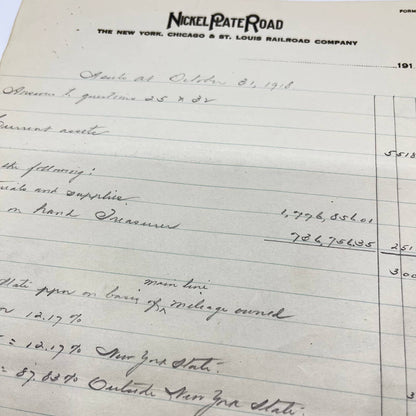 FORM
NICKEL PLATE ROAD
THE NEW YORK, CHICAGO & ST. LOUIS RAILROAD COMPANY
191
at October 31, 1918
Answers to questions 25 & 32
Current assets 5518
the following:
and supplies 1,776,856.01
on hand Treasurer 736,756.35 251
300
main line
State on basis of ^ mileage owned
12.17%
= 12.17% New York State.
= 87.83% Outside New York State. 3